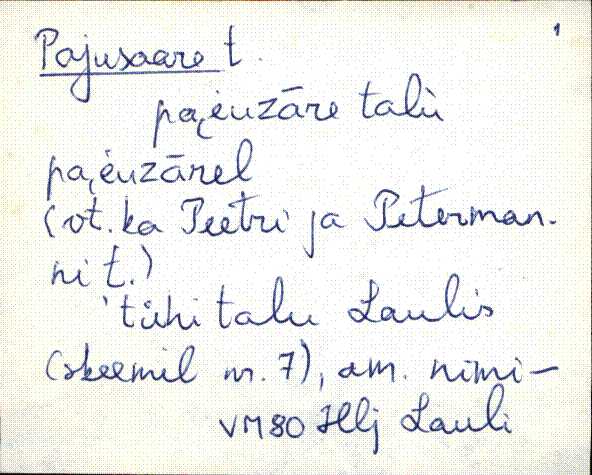 1
Pajusaare t.
pai̯uzāre talù
pai̯uzārel
(vt. ka Peetri ja Peterman-
ni t.)
'tühi talu Laulis
(skeemil nr. 7), am. nimi –
VM80 Hlj Lauli